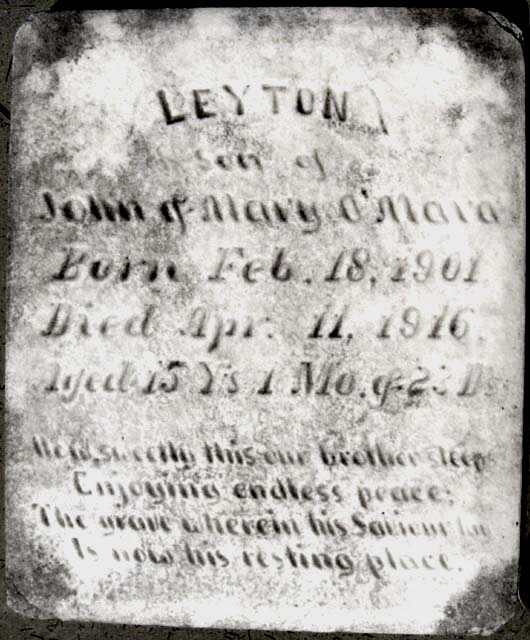 LEYTON
Son of
John & Mary O'Mara
Born Feb. 18, 1901
Died Apr. 11, 1916.
Aged 15 Ys 1 Mo. & Ds
sweetly this our brother sleeps
Enjoying endless peace;
The grave wherein his Saviour
Is now his resting place.